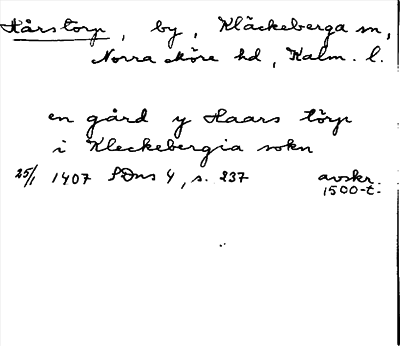 Hårstorp, by, Kläckeberga sn,
Norra Möre hd, Kalm. l.
en gård y Haars törp
i Kleckebergia sokn
25/1 1407 SDns 4, s. 237 avskr.
1500-t.